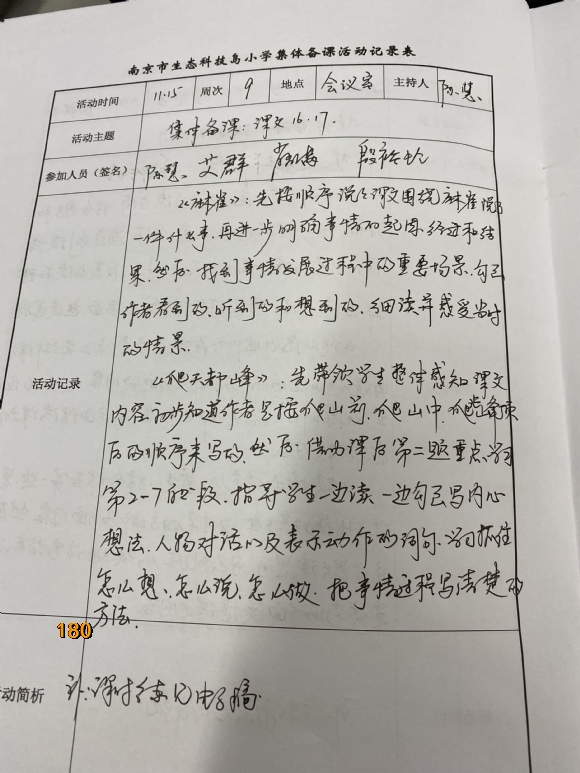 南京市生态科技岛小学集体备课活动记录表
活动时间 11.15 周次 9 地点 会议室 主持人 陈慧
活动主题 集体备课：课文16、17.
参加人员（签名） 陈慧、艾群
《麻雀》：先按顺序说说课文围绕麻雀说
一件什么事，再进一步明确事情的起因、经过和结
果，然后，找到事情发展过程中的重要场景，勾己
作者看到的、听到的和想到的，细读并感受当时
的情景.
活动记录
《爬天都峰》：先带领学生整体感知课文
内容，初步知道作者是按爬山前，爬山中，爬上峰顶
后的顺序来写的，然后，借助课后第二题重点学习
第2-7自然段，指导学生一边读一边勾己写内心
想法、人物对话以及表示动作的词句，学习抓住
怎么想、怎么说、怎么做.把事情过程写清楚的
方法.
180
动简析 补：课时练习电子稿.